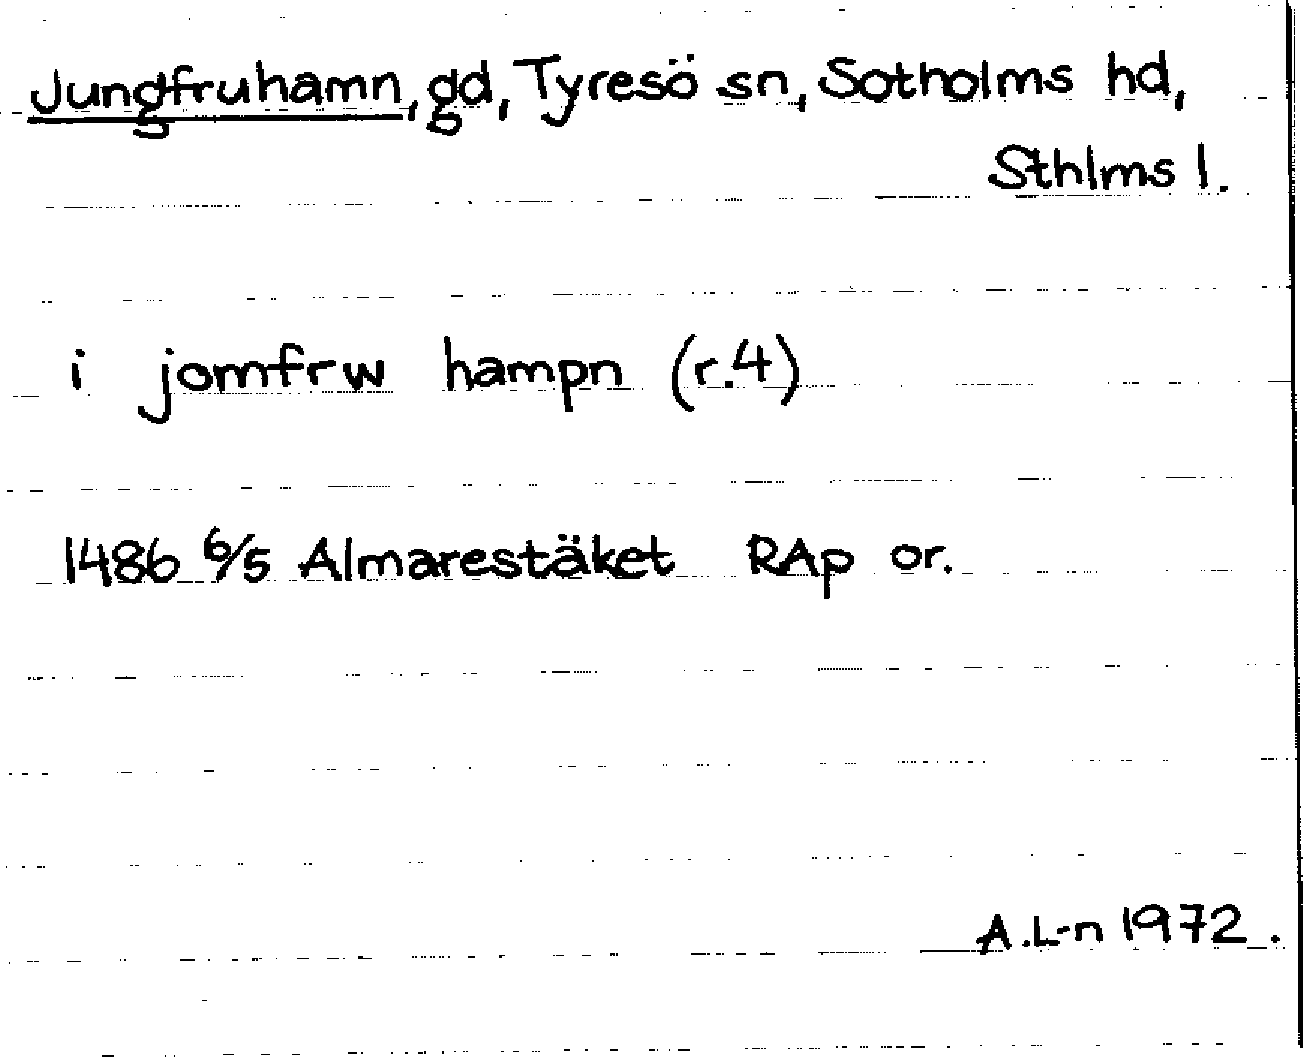 Jungfruhamn, gd, Tyresö sn, Sotholms hd,
Sthlms l.
i jomfrw hampn (r.4)
1486 6/5 Almarestäket RAp or.
A.L-n 1972.